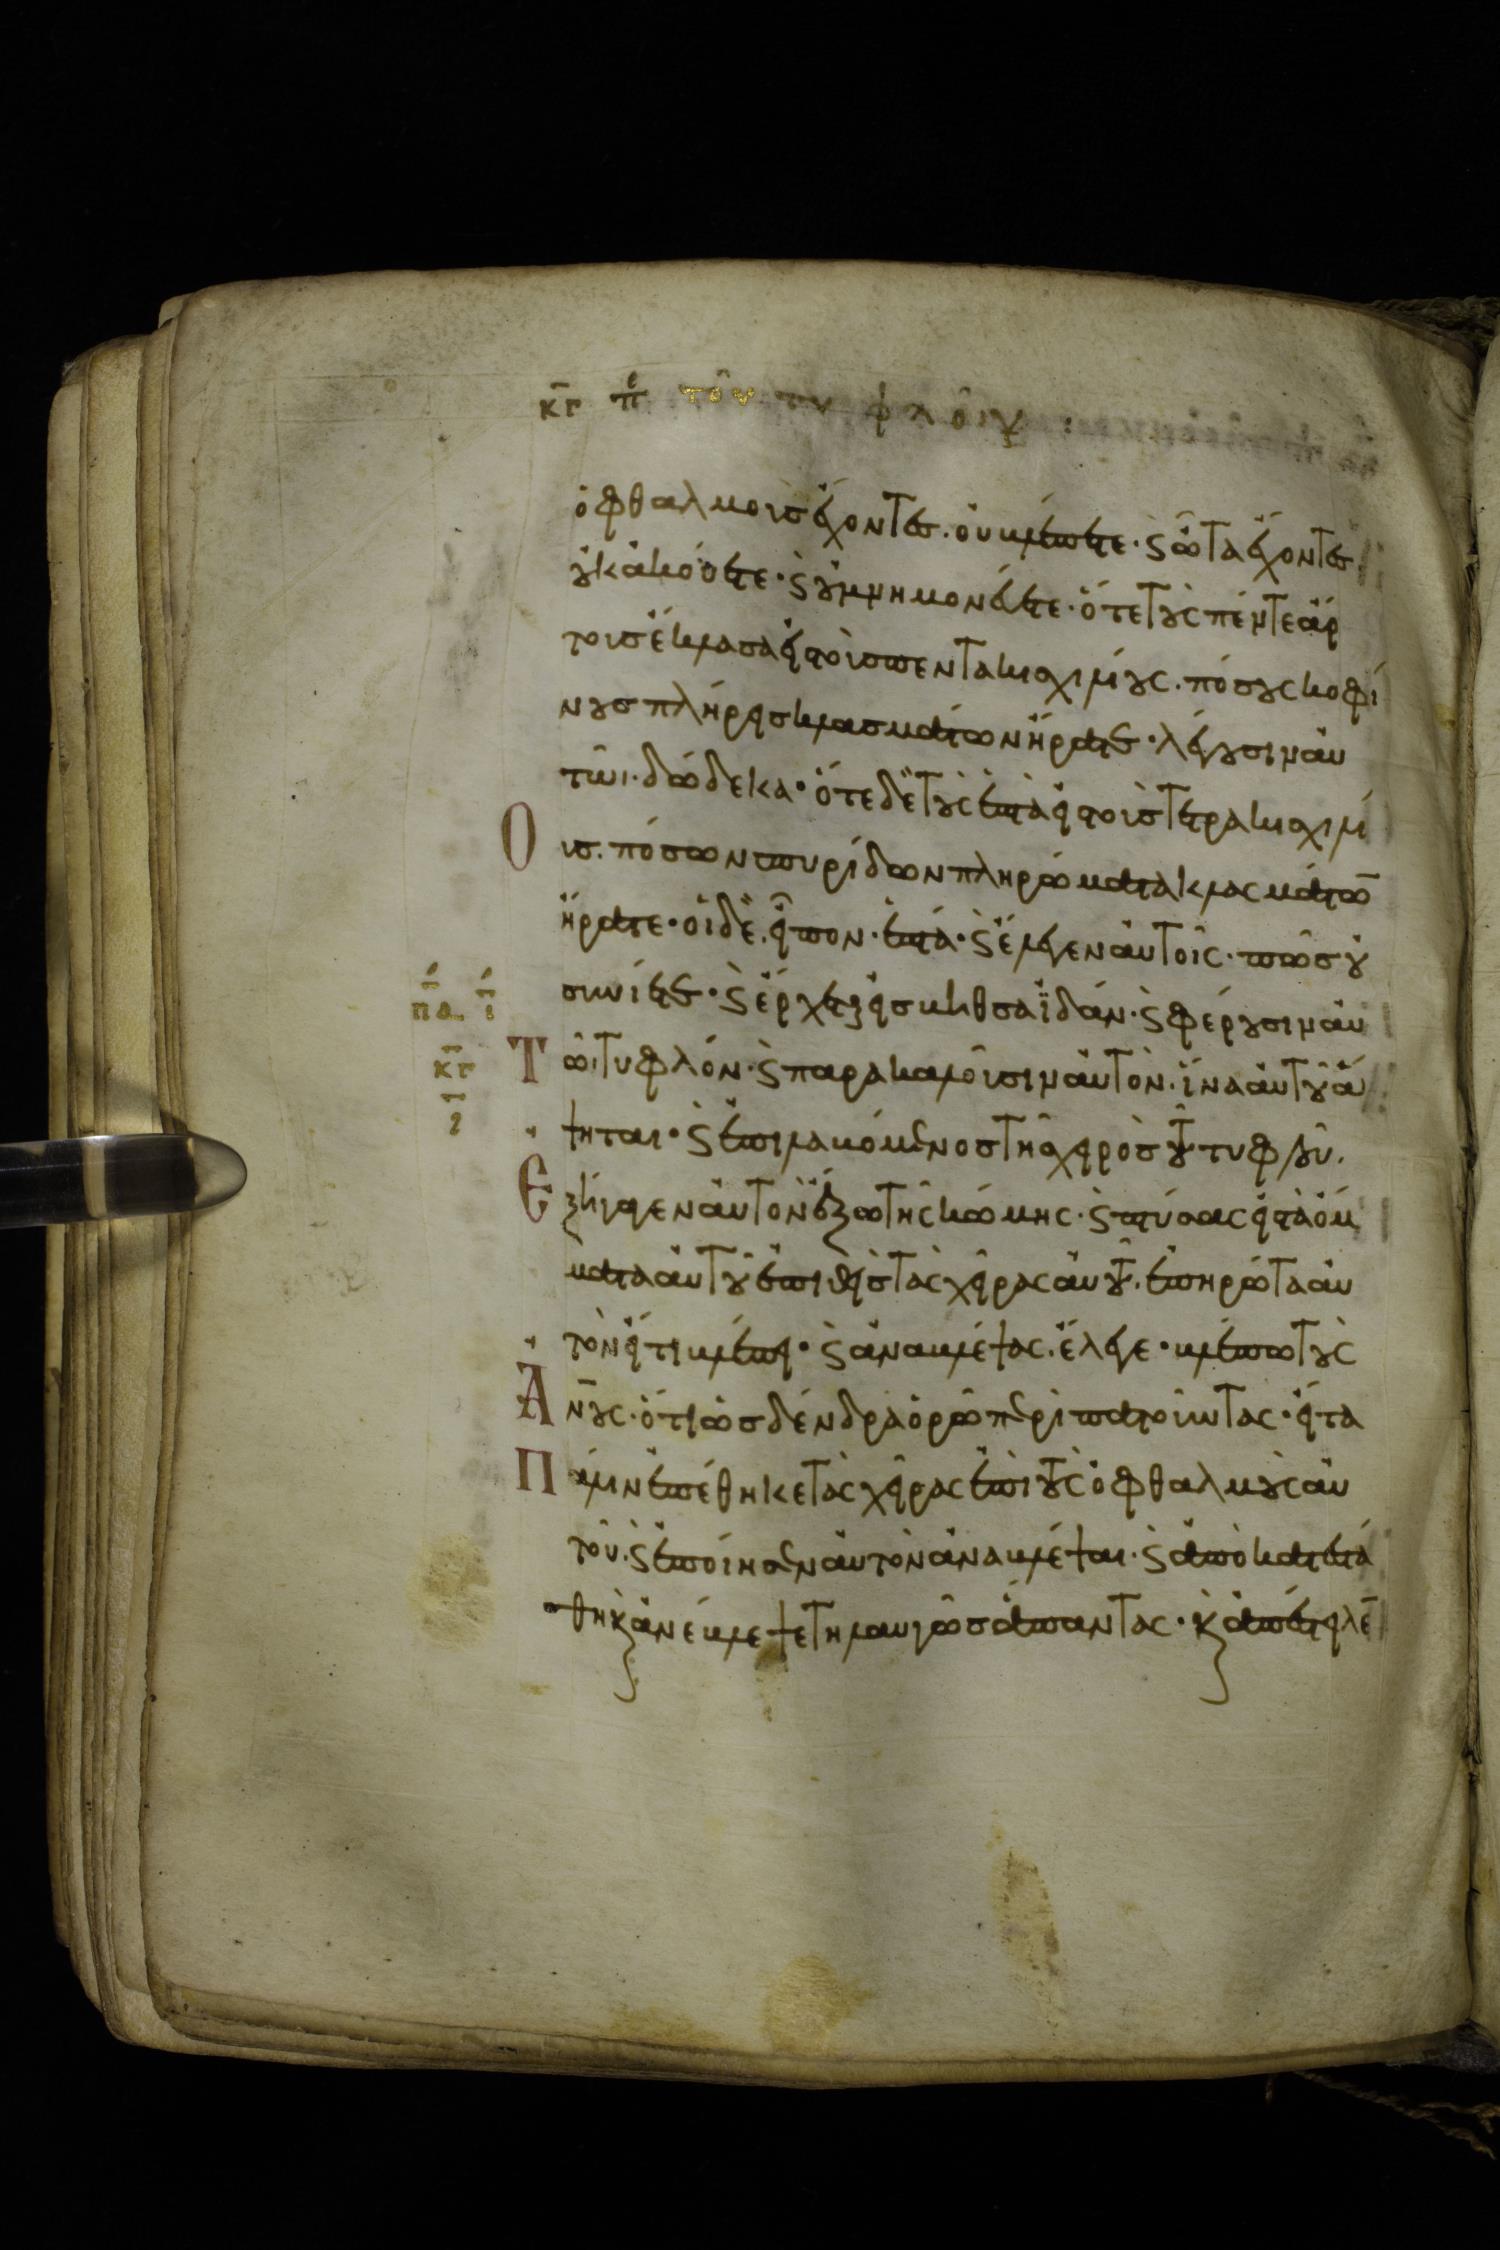 κγ πε τοῦ τυφλοῦ
ὀφθαλμοὺς ἔχοντες. οὐ βλέπετε· ϛ ὦτα ἔχοντες
οὐκ ἀκούετε· ϛ οὐ μνημονεύετε· ὅτε τοὺς πέντε ἄρ
τους ἔκλασα εἰς τοὺς πεντακισχιλίους. πόσους κοφί
νους πλήρεις κλασμάτων ἤρατε· λέγουσιν αὐ
τῶι· δώδεκα· ὅτε δὲ τοὺς ἑπτὰ εἰς τοὺς τετρακισχιλί
Ους. πόσων σπυρίδων πληρώματα κλασμάτω̅
ἤρατε· οἱ δὲ εἶπον· ἑπτά· ϛ ἔλεγεν αὐτοῖς· πῶς οὐ
συνίετε· ϛ ἔρχεται εἰς βηθσαϊδάν· ϛ φέρουσιν αὐ
Τῶ· τυφλόν· ϛ παρακαλοῦσιν αὐτὸν. ἵνα αὐτοῦ ἅ
ψηται· ϛ ἐπιλαβόμενος τῆς χειρὸς τοῦ τυφλοῦ.
Ἐξήγαγεν αὐτὸν ἔξω τῆς κώμης· ϛ πτύσας εἰς τὰ ὄμ
ματα αὐτοῦ ἐπιθεὶς τὰς χεῖρας αὐτοῦ. ἐπηρώτα αὐ
τὸν εἴ τι βλέπει· ϛ ἀναβλέψας. ἔλεγε· βλέπω τοὺς
Ἀν̅ους· ὅτι ὡς δένδρα ὁρῶ περιπατοῦντας· εἶτα
Πάλιν ἐπέθηκε τὰς χεῖρας ἐπὶ τοὺς ὀφθαλμοὺς αὐ
τοῦ· ϛ ἐποίησεν αὐτὸν ἀναβλέψαι· ϛ ἀποκατεστά
θη κ̀ ἀνέβλεψε τηλαυγῶς ἅπαντας· κ̀ ἀπέστειλε̅